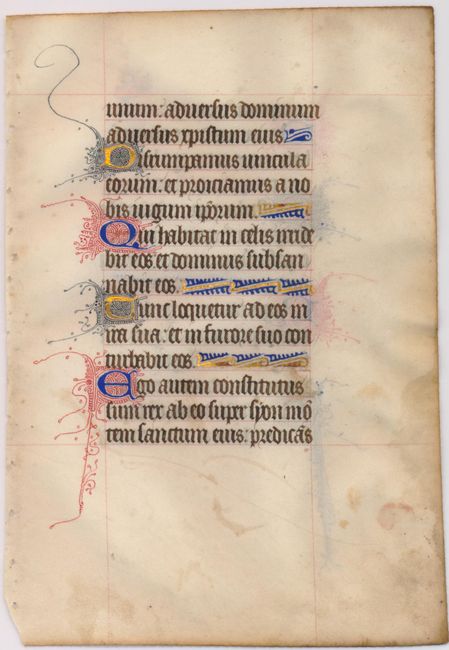 unum: adversus dominum
adversus xpistum eius
Dirumpamus vincula
eorum: et proiciamus a no
bis iugum ipōrum.
Qui habitat in celis irride
bit eos et dominus subsan
nabit eos.
Tunc loquetur ad eos in
ira sua: et in furore suo con
turbabit eos
Ego autem constitutus
sum rex ab eo super syon mō
tem sanctum eius: predicās